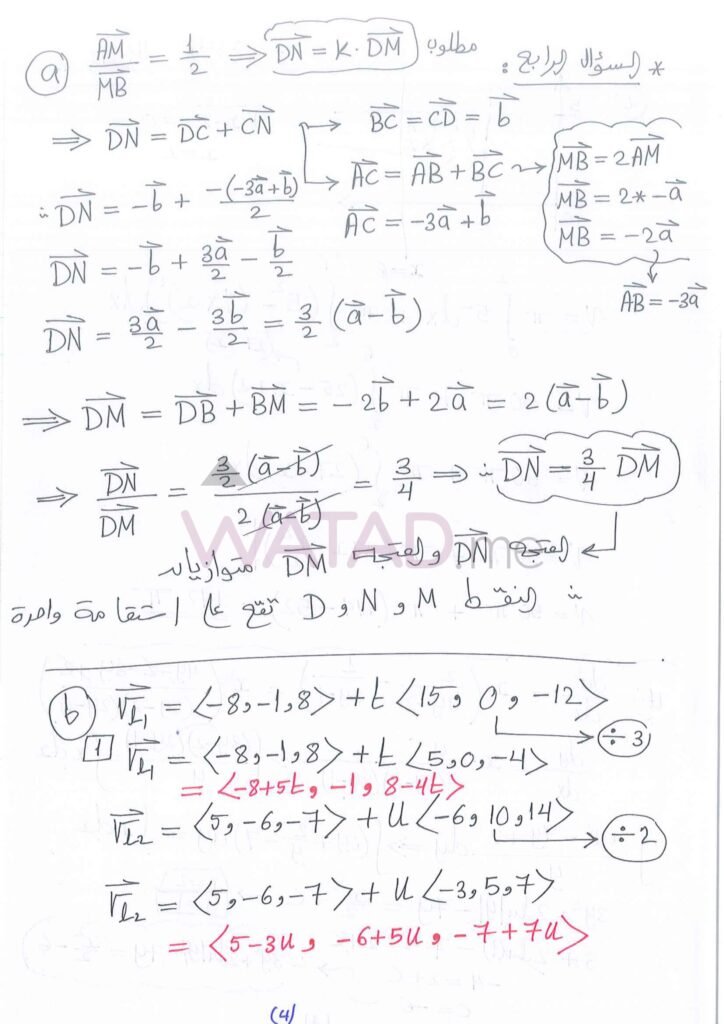 * السؤال الرابع :
(a) AM/MB = 1/2 ⇒ DN = K · DM مطلوب
⇒ DN = DC + CN → BC = CD = b
→ AC = AB + BC → MB = 2AM
∴ DN = -b + -(-3a+b)/2
AC = -3a + b
MB = 2* -a
MB = -2a
DN = -b + 3a/2 - b/2
AB = -3a
DN = 3a/2 - 3b/2 = 3/2 (a-b)
⇒ DM = DB + BM = -2b + 2a = 2(a-b)
⇒ DN/DM = 3/2 (a-b) / 2 (a-b) = 3/4 ⇒ ∴ DN = 3/4 DM
WATAD.me
المتجه DN والمتجه DM متوازيان
∴ النقط M و N و D تقع على استقامة واحدة
(b) r l₁ = <-8, -1, 8> + t <15, 0, -12>
÷3
1 r l₁ = <-8, -1, 8> + t <5, 0, -4>
= <-8+5t, -1, 8-4t>
r l₂ = <5, -6, -7> + u <-6, 10, 14>
÷2
r l₂ = <5, -6, -7> + u <-3, 5, 7>
= <5-3u, -6+5u, -7+7u>
(4)